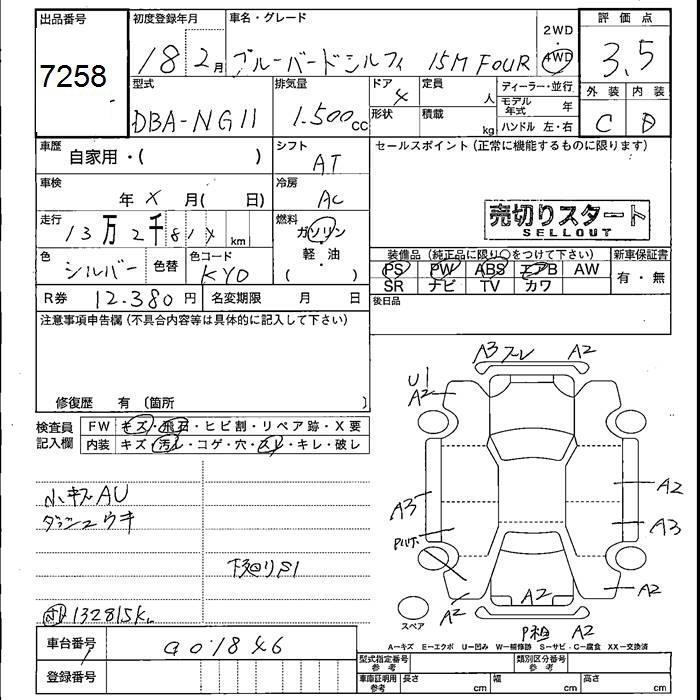 出品番号
7258
初度登録年月
18 2月
車名・グレード
ブルーバードシルフィ 15M FOUR
2WD
4WD
評価点
3.5
外装 内装
C D
型式
DBA-NG11
排気量
1.500cc
ドア
4
形状
定員
人
積載
kg
ディーラー・並行
モデル年式 年
ハンドル 左・右
車歴
自家用・( )
シフト
AT
セールスポイント(正常に機能するものに限ります)
車検
年 X 月( 日)
冷房
AC
売切りスタート
SELLOUT
走行
13万2千81X km
燃料
ガソリン
軽・油
( )
色
シルバー
色替
色コード
KY0
装備品(純正品に限り○をつけて下さい)
PS PW ABS エアB AW
SR ナビ TV カワ
新車保証書
有・無
後日品
R券 12.380円
名変期限 月 日
注意事項申告欄(不具合内容等は具体的に記入して下さい)
修復歴 有〔箇所 〕
検査員
記入欄
FW キズ・飛石・ヒビ割・リペア跡・X要
内装 キズ・汚レ・コゲ・穴・スレ・キレ・破レ
小キズAU
ダッシュウキ
下廻りS1
132815K
A3 スレ A2
U1
A2
A3
A2
A3
A2
A2
A2
A2
スペア
A−キズ E−エクボ U−凹み W−補修跡 S−サビ・C−腐食 XX−交換済
車台番号
登録番号
型式指定番号
参考
類別区分番号
参考
車庫証明用
参考
長さ cm
幅 cm
高さ cm